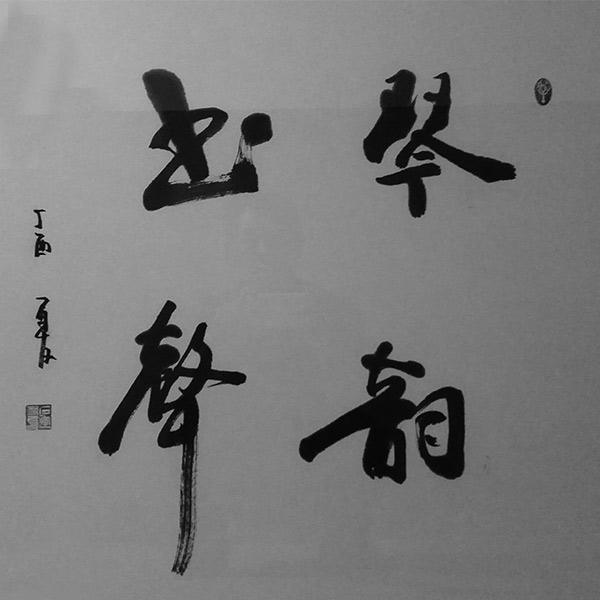 琴韵
书聲
丁酉